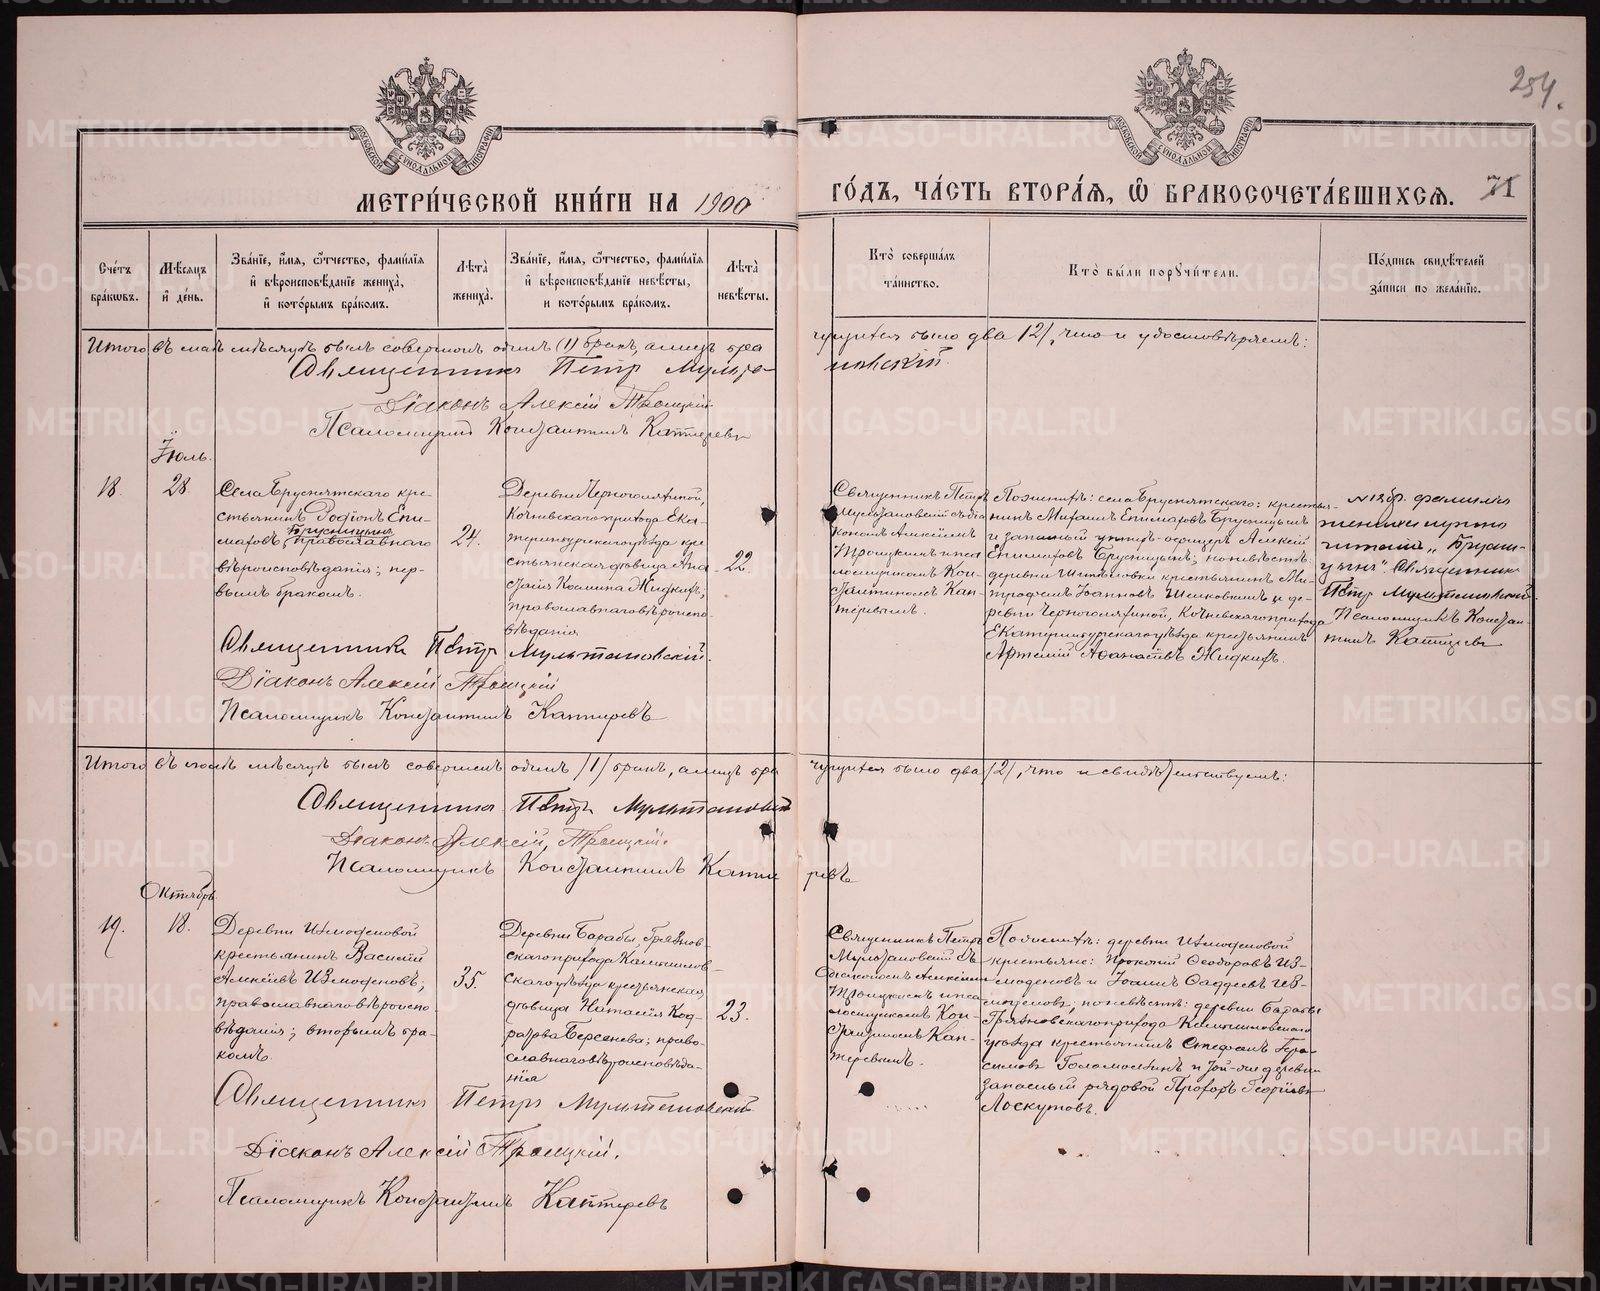 254.
МЕТРИ́ЧЕСКОЙ КНИ́ГИ НА 1900
ГО́ДЪ, ЧА́СТЬ ВТОРА́Я, Ѽ БРАКОСОЧЕТА́ВШИХСЯ. 71
Сче́тъ бра́ковъ.
Мѣ́сяцъ и́ де́нь.
Зва́нїе, и́мя, ѻ́тчество, фами́лїя и́ вѣроисповѣ́данїе жениха́, и́ кото́рымъ бра́комъ.
Лѣта̀ жениха́.
Зва́нїе, и́мя, ѻ́тчество, фами́лїя и́ вѣроисповѣ́данїе невѣ́сты, и кото́рымъ бра́комъ.
Лѣта̀ невѣ́сты.
Кто̀ соверша́лъ та́инство.
Кто̀ бы́ли порꙋчи́тели.
По́дпись свидѣ́телей за́писи по жела́нїю.
Итого въ маѣ мѣсяцѣ былъ совершенъ одинъ (1) бракъ, а лицъ бра
чущихся было два /2/, что и удостовѣряемъ:
Священникъ Петръ Мульта-
новскій.
Діаконъ Алексій Троицкій.
Псаломщикъ Константинъ Каптеревъ
Іюль.
18.
28.
Села Бруснятскаго кре-
стьянинъ Родіонъ Епи-
маховъ Брусницынъ, православнаго
вѣроисповѣданія; пер-
вымъ бракомъ.
24.
Деревни Черноголятиной,
Кочневскаго прихода Ека-
теринбургскаго уѣзда кре-
стьянская дѣвица
Космина Жидкихъ,
православнаго вѣроиспо-
вѣданія
22.
Священникъ Петръ
Мультановскій съ діа-
кономъ Алексіемъ
Троицкимъ и пса-
ломщикомъ Кон-
стантиномъ Кап-
теревымъ.
По женихѣ: села Бруснятскаго: крестья-
нинъ Михаилъ Епимаховъ Брусницынъ
и запасный унтеръ-офицеръ Алексій
Епимаховъ Брусницынъ; по невѣстѣ:
деревни крестьянинъ Ми-
трофанъ Іоанновъ и де-
ревни Черноголятиной, Кочневскаго прихода
Екатеринбургскаго уѣзда крестьянинъ
Артемій Афанасьевъ Жидкихъ.
№ 18 фамилія
жениха нужно
читать „Брусни-
цынъ“. Священникъ
Петръ Мультановскій.
Псаломщикъ Констан-
тинъ Каптеревъ
Священникъ Петръ Мультановскій.
Діаконъ Алексій Троицкій
Псаломщикъ Константинъ Каптеревъ
Итого въ іюлѣ мѣсяцѣ былъ совершенъ одинъ /1/ бракъ, а лицъ бра
чущихся было два /2/, что и свидѣтельствуемъ:
Священникъ Петръ Мультановскій
Діаконъ Алексій Троицкій.
Псаломщикъ Константинъ Капте
ревъ
Октябрь
19.
18.
Деревни Измоденовой
крестьянинъ Василій
Алексіевъ Измоденовъ,
православнаго вѣроиспо-
вѣданія; вторымъ бра-
комъ.
35.
Деревни Барабы, Грязнов-
скаго прихода Камышлов-
скаго уѣзда крестьянская
дѣвица Наталія Код-
ратова Берсенева; право-
славнаго вѣроисповѣда-
нія
23.
Священникъ Петръ
Мультановскій съ
діакономъ Алексіемъ
Троицкимъ и пса-
ломщикомъ Кон-
стантиномъ Кап-
теревымъ.
По женихѣ: деревни Измоденовой
крестьяне: Прокопій Ѳеодоровъ Из-
моденовъ и Іоаннъ Ѳаддеевъ Из-
моденовъ; по невѣстѣ: деревни Барабы
Грязновскаго прихода Камышловскаго
уѣзда крестьянинъ Стефанъ Гера-
симовъ Голомолзинъ и той-же деревни
запасный рядовой Прохоръ Георгіевъ
Лоскутовъ.
Священникъ Петръ Мультановскій
Діаконъ Алексій Троицкій.
Псаломщикъ Константинъ Каптеревъ
METRIKI.GASO-URAL.RU